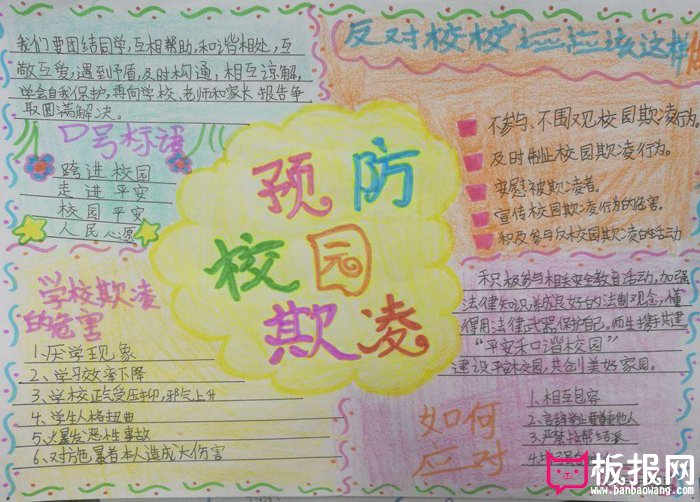 我们要团结同学,互相帮助,和谐相处,互
敬互爱,遇到矛盾,及时沟通,相互谅解,
学会自我保护,再向学校、老师和家长报告争
取圆满解决。
口号标语
跨进校园
走进平安
校园平安
人民心愿
反对校校 应该这样
不参与、不围观校园欺凌行为。
及时制止校园欺凌行为。
安慰被欺凌者。
宣传校园欺凌行为的危害。
积及参与反校园欺凌的活动
预防
校园
欺凌
学校欺凌
的危害
1、厌学现象
2、学习效率下降
3、学校正气受压抑,邪气上升
4、学生人格扭曲
5、火暴发恶性事故
6、对方色暴者本人造成大伤害
积极参与相关安全教育活动,加强
法律知识,养成良好的法制观念,懂
得用法律武器保护自己。师生携手共建
"平安和谐校园"
建设平安校园,共创美好家园。
如何
应对
1.相互包容
2、言辞举止要尊重他人
3、严禁拉帮结派
板报网
www.banbaowang.com